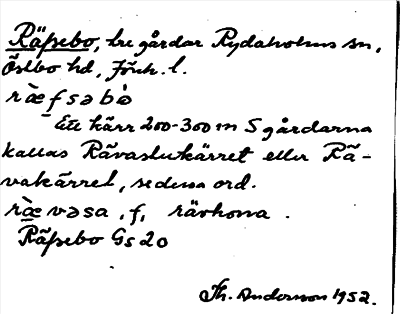 Räfsebo, tre gårdar Rydaholms sn,
Östbo hd, Jönk. l.
ræ̀fsəbò
Ett kärr 200-300 m S gårdarna
kallas Rävastukärret eller Rä-
vakärret, se dessa ord.
ræ̀vəsa, f, rävhona.
Räfsebo Gs 20
Th. Andersson 1952.